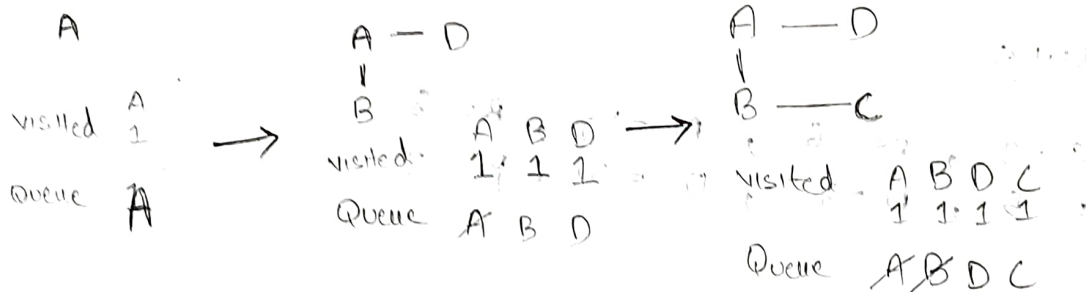 A
visited A
1
Queue A
A — D
B
A B D
visited. 1 1 1
Queue A B D
A — D
B — C
visited A B D C
1 1 1 1
Queue A B D C